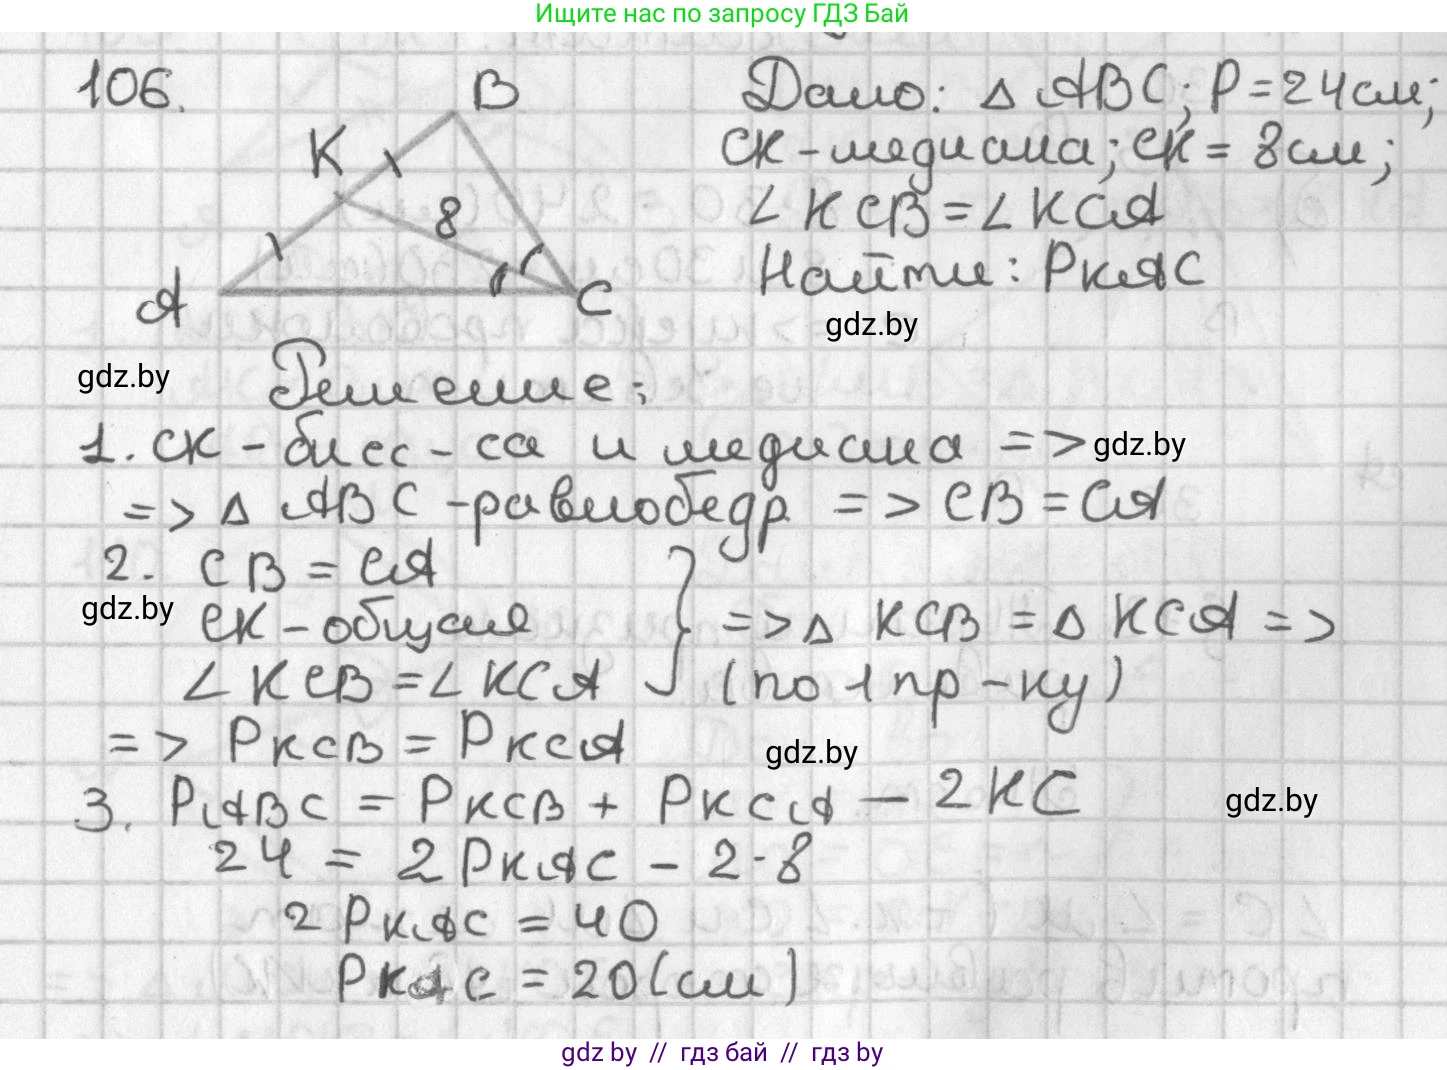 Ищите нас по запросу ГДЗ Бай
106.
B
K
8
A
C
Дано: △ ABC; P = 24 см;
CK - медиана; CK = 8 см;
∠ KCB = ∠ KCA
Найти: PKAC
gdz.by
gdz.by
Решение:
1. CK - бисс - са и медиана =>
gdz.by
=> △ ABC - равнобедр => CB = CA
2. CB = CA
gdz.by
CK - общая
∠ KCB = ∠ KCA
} => △ KCB = △ KCA =>
(по 1 пр - ку)
=> PKCB = PKCA
gdz.by
3. PABC = PKCB + PKCA - 2KC
gdz.by
24 = 2PKAC - 2·8
2PKAC = 40
PKAC = 20(см)
gdz by // гдз бай // гдз by